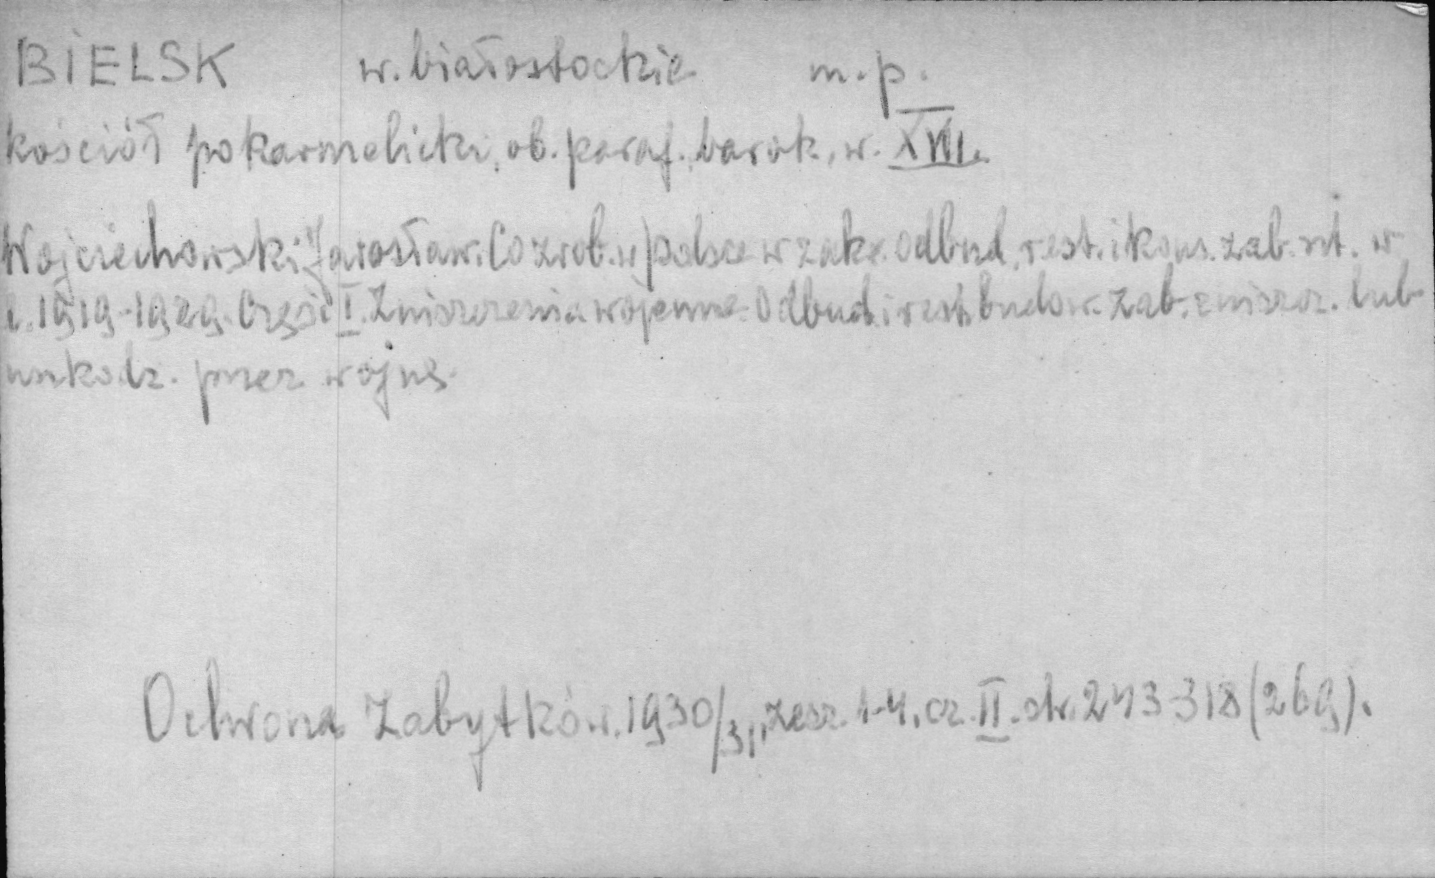 BIELSK w. białostockie m. p.
kościół pokarmelicki, ob. paraf. barok, w. XVIII.
Wojciechowski Jarosław: Co zrob. w Polsce w zakr. odbud. rest. i kons. zab. szt. w
l. 1919-1929. Część I. Zniszczenia wojenne. Odbud. i rest. budow. zab. zniszcz. lub
uszkodz. przez wojnę.
Ochrona Zabytków. 1930/31, zesz. 1-4. cz. II. str. 243-318 (269).